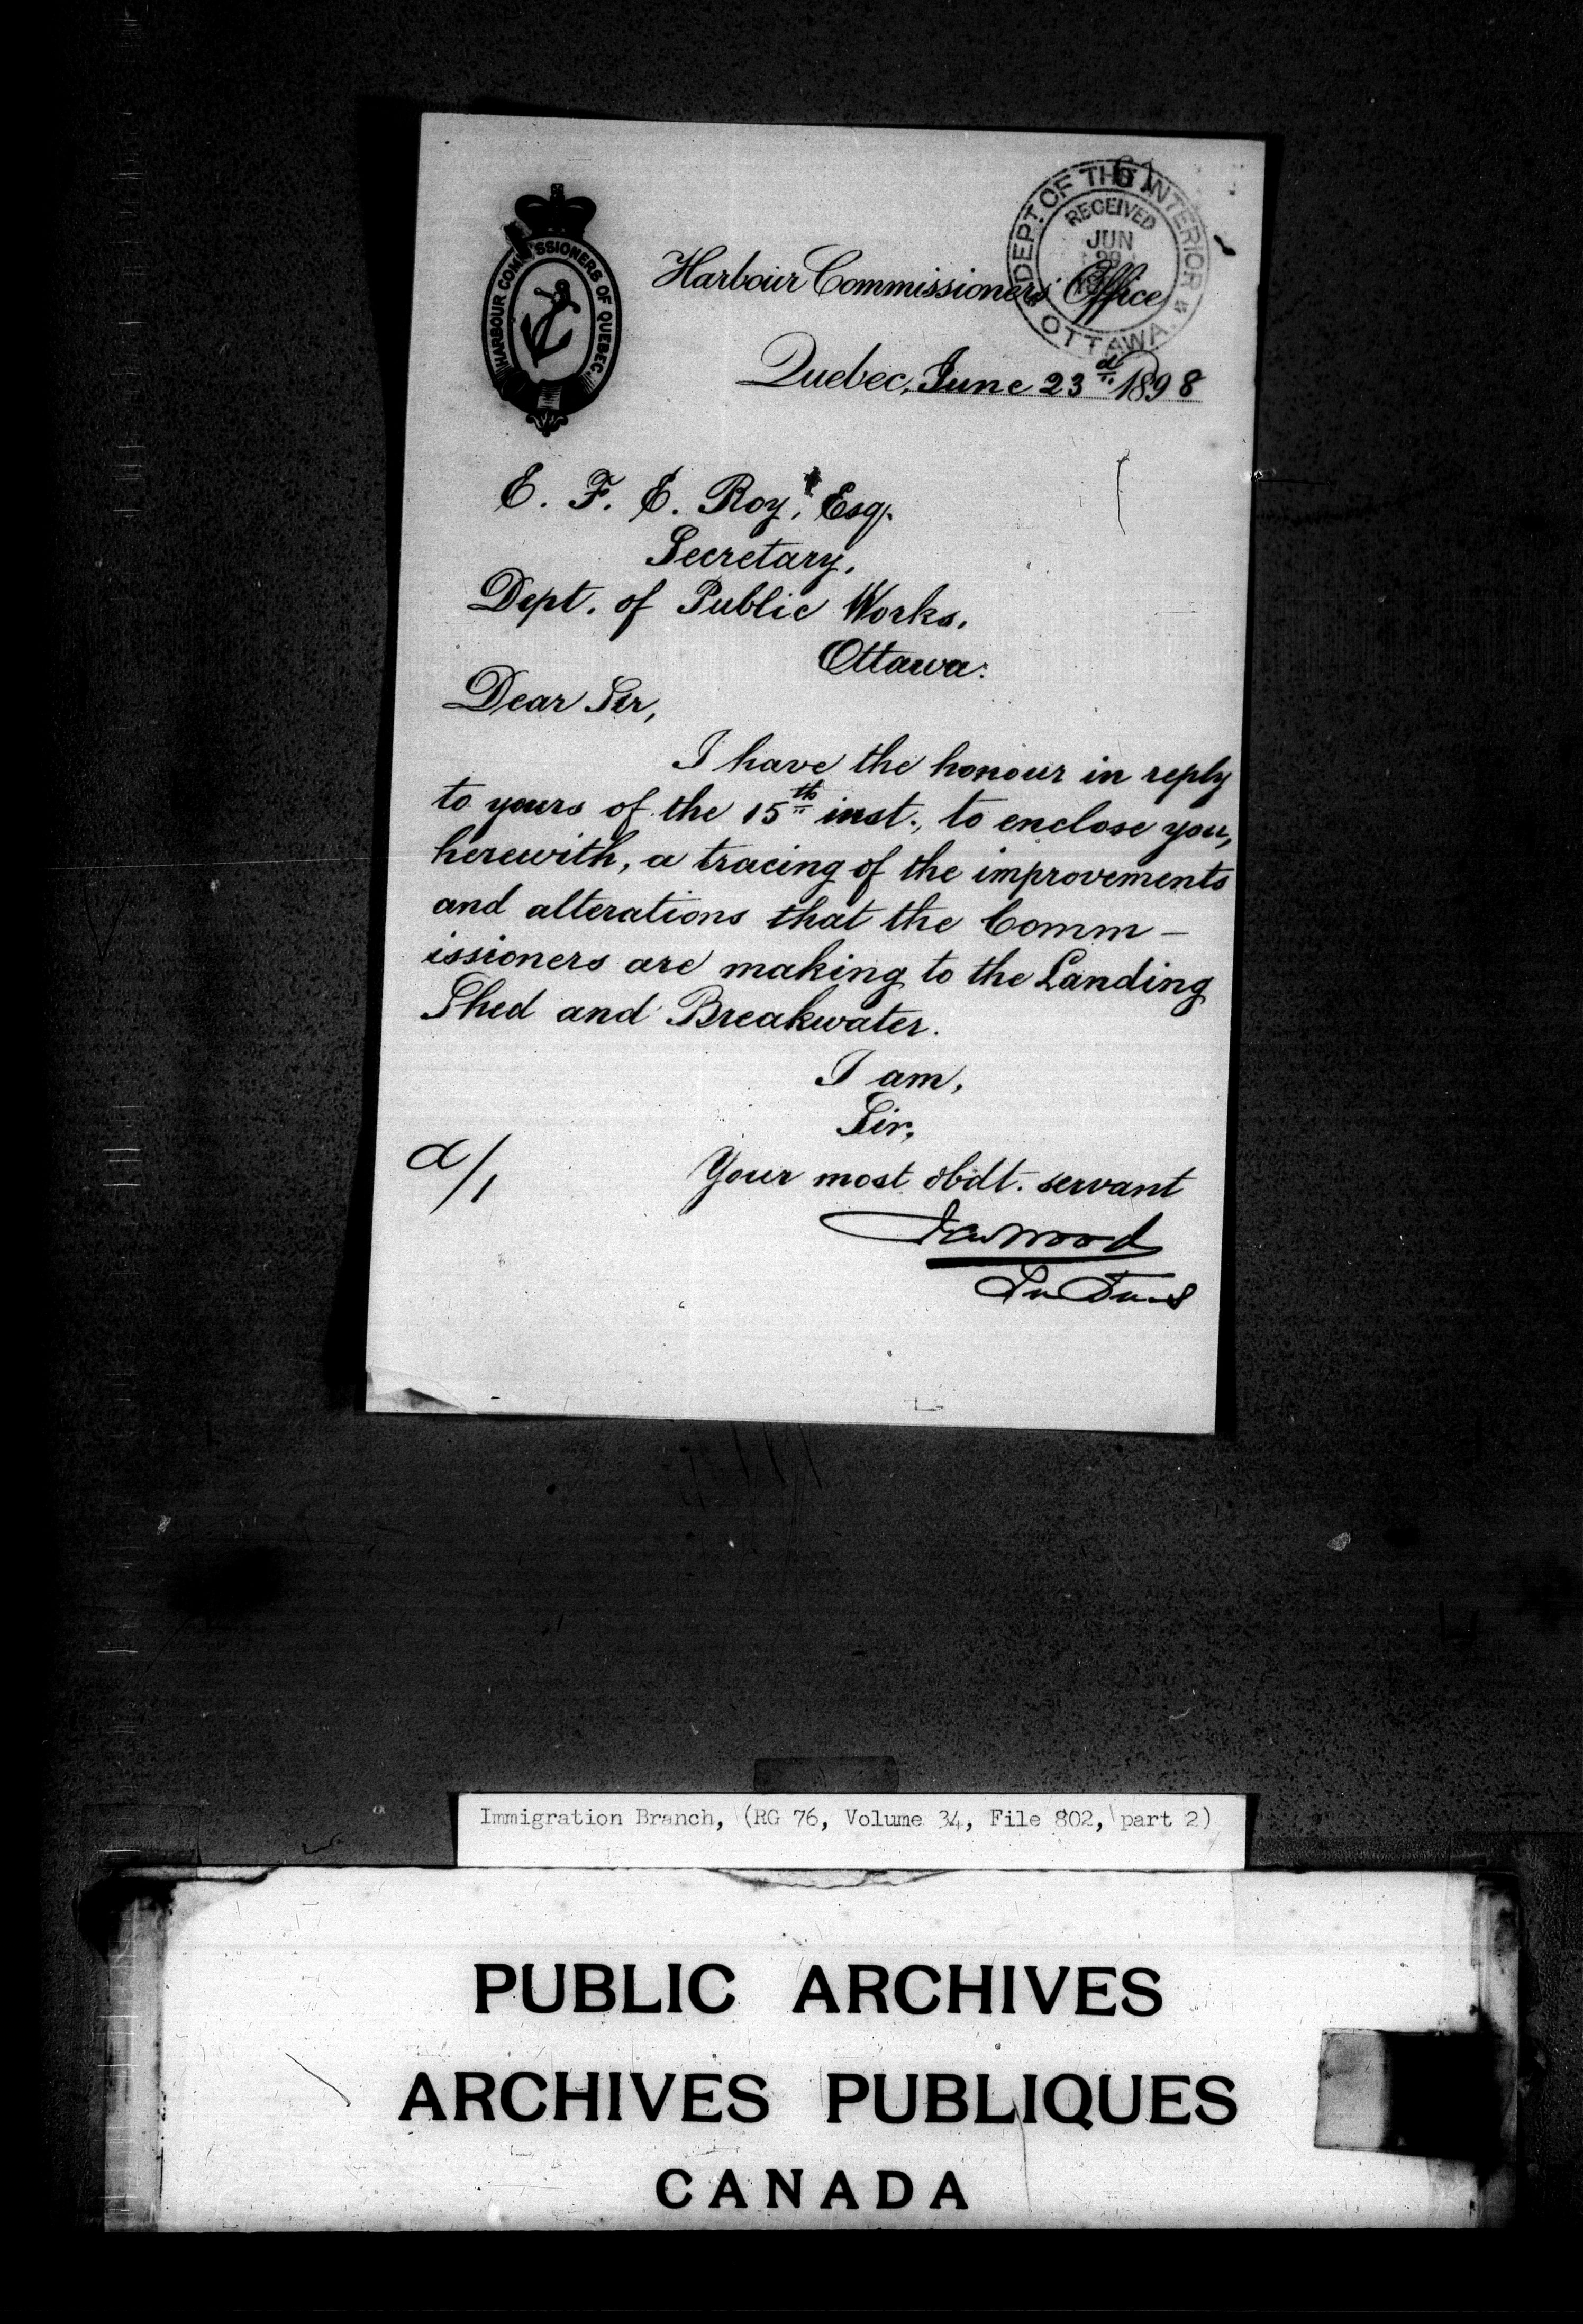 HARBOUR COMMISSIONERS OF QUEBEC.
DEPT. OF THE INTERIOR
RECEIVED
JUN
29
OTTAWA
Harbour Commissioners' Office
Quebec, June 23d 1898
E. F. E. Roy, Esq.
Secretary.
Dept. of Public Works.
Ottawa:
Dear Sir,
I have the honour in reply
to yours of the 15th inst., to enclose you,
herewith, a tracing of the improvements
and alterations that the Comm-
issioners are making to the Landing
Shed and Breakwater.
I am,
Sir,
Your most obdt. servant
a/1
Immigration Branch, (RG 76, Volume 34, File 802, part 2)
PUBLIC ARCHIVES
ARCHIVES PUBLIQUES
CANADA